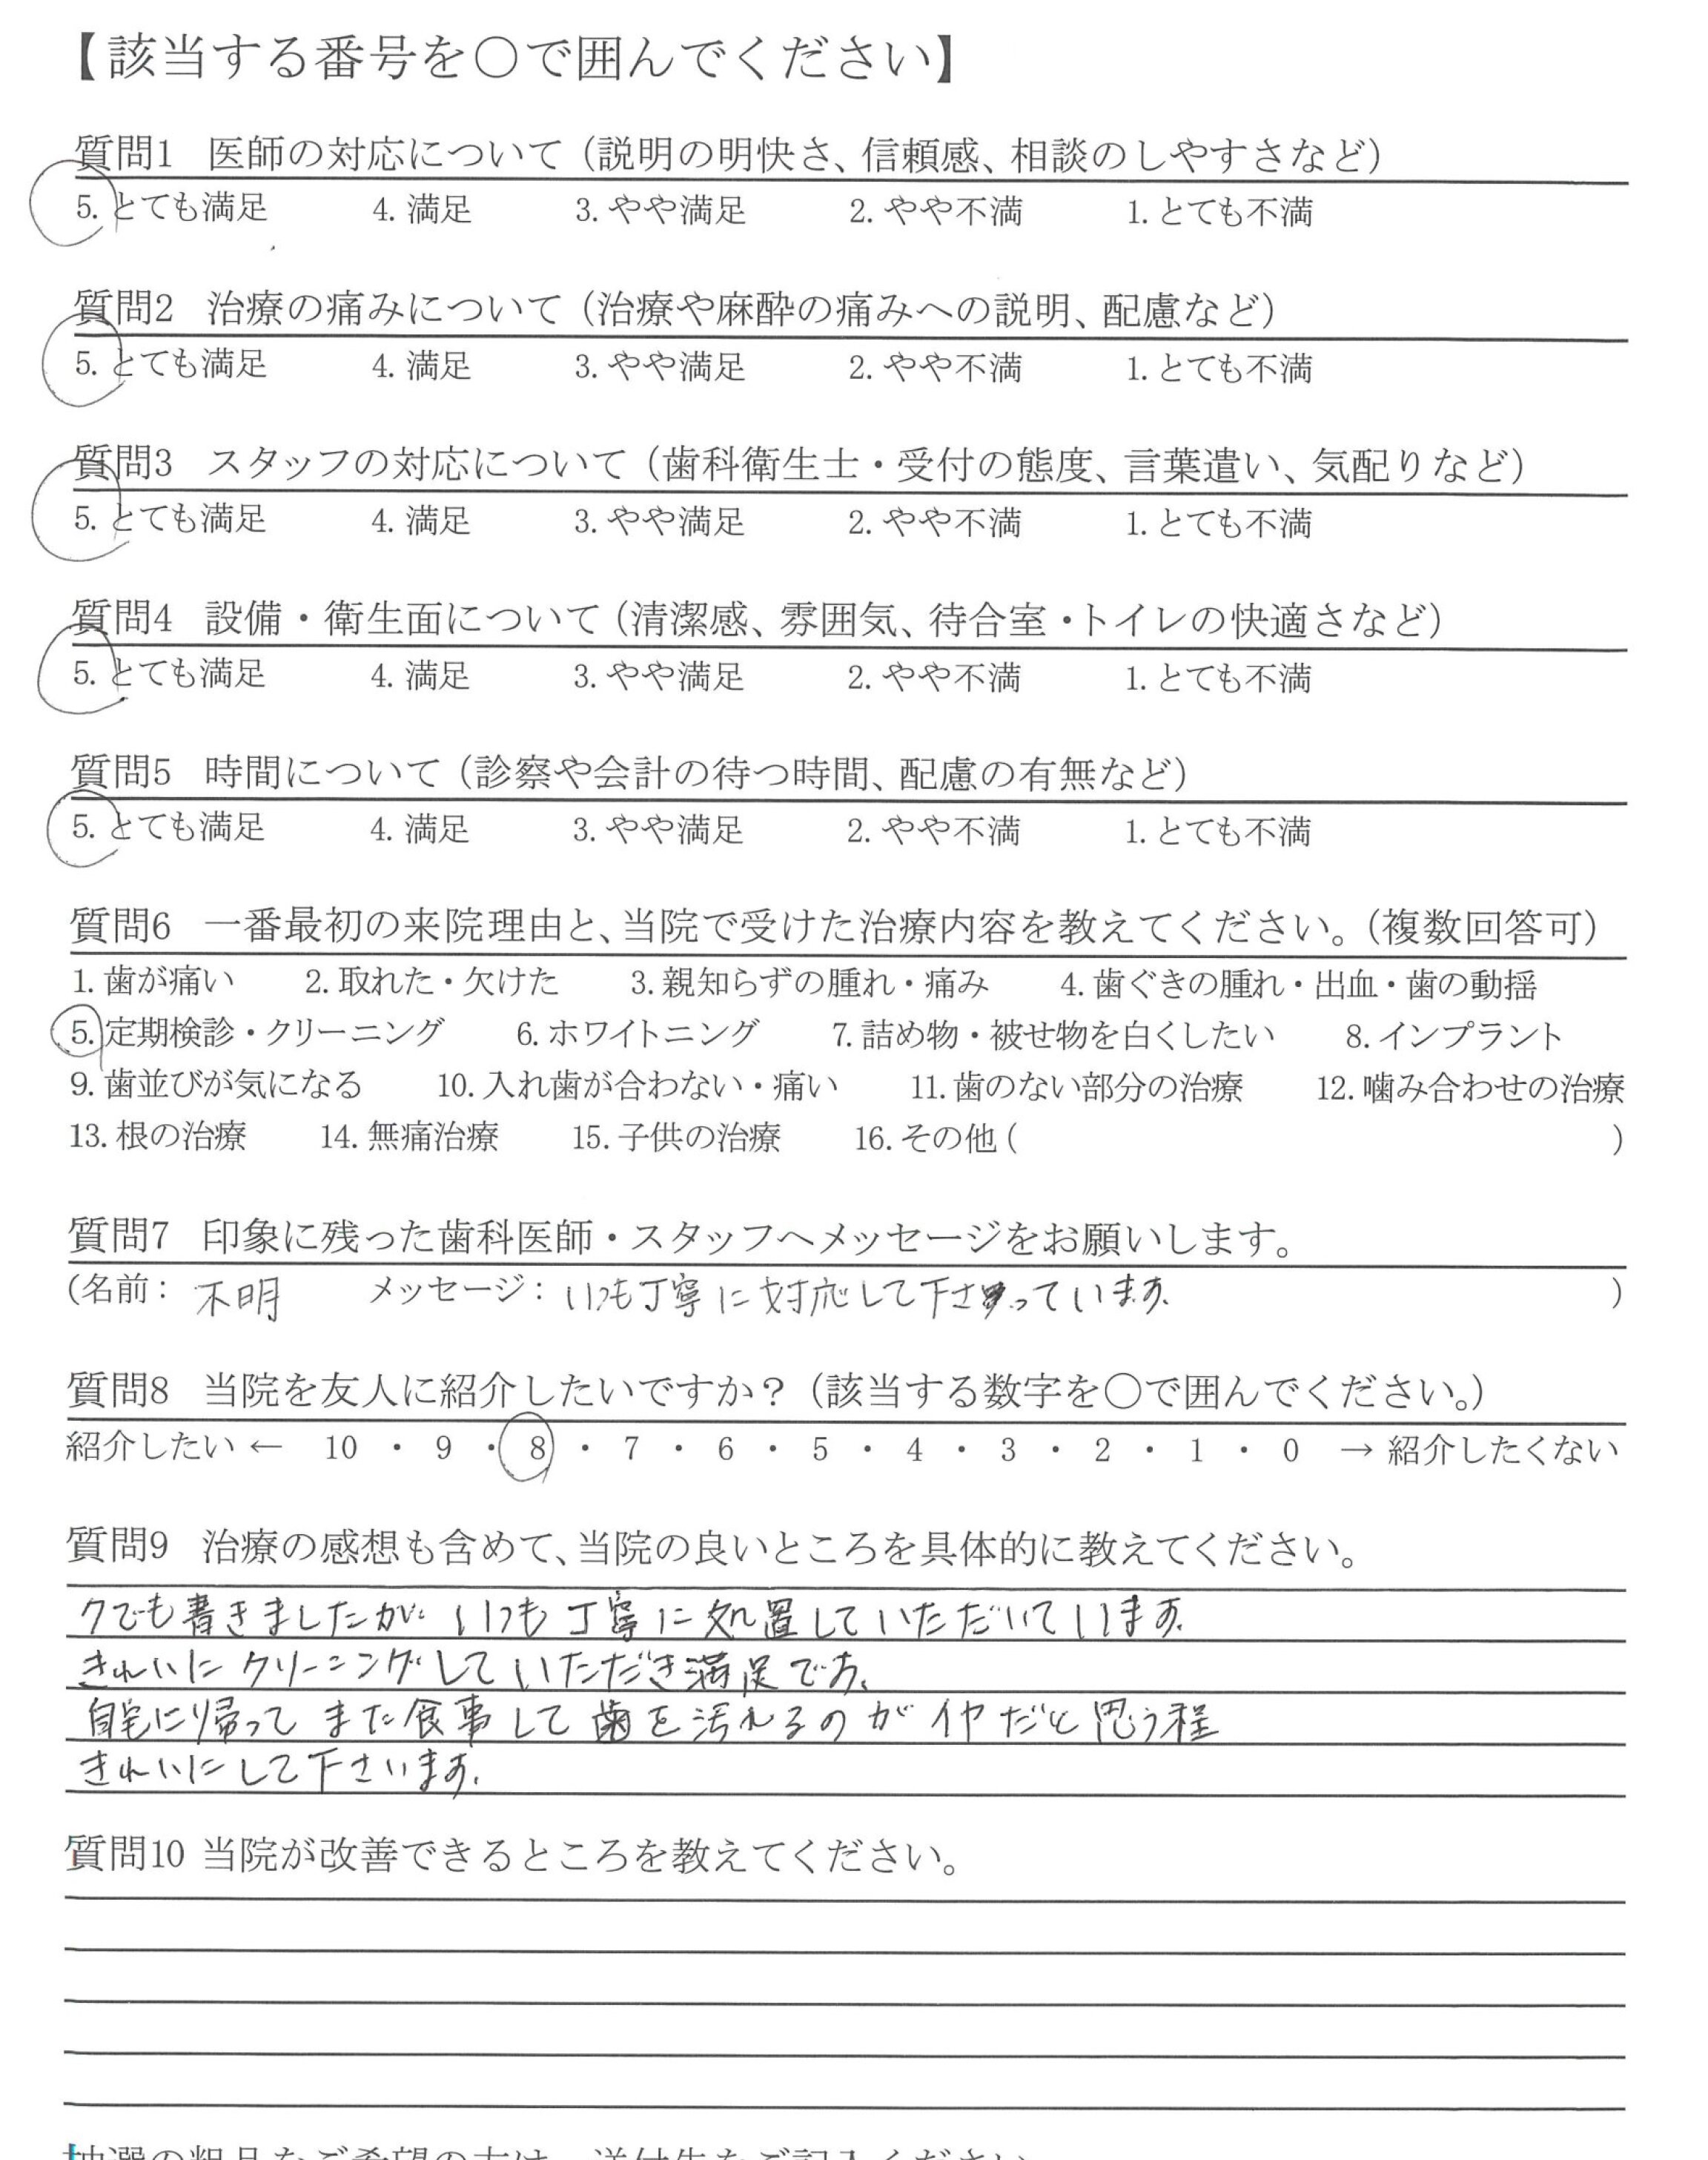 【該当する番号を○で囲んでください】
質問1 医師の対応について（説明の明快さ、信頼感、相談のしやすさなど）
5. とても満足 4. 満足 3. やや満足 2. やや不満 1. とても不満
質問2 治療の痛みについて（治療や麻酔の痛みへの説明、配慮など）
5. とても満足 4. 満足 3. やや満足 2. やや不満 1. とても不満
質問3 スタッフの対応について（歯科衛生士・受付の態度、言葉遣い、気配りなど）
5. とても満足 4. 満足 3. やや満足 2. やや不満 1. とても不満
質問4 設備・衛生面について（清潔感、雰囲気、待合室・トイレの快適さなど）
5. とても満足 4. 満足 3. やや満足 2. やや不満 1. とても不満
質問5 時間について（診察や会計の待つ時間、配慮の有無など）
5. とても満足 4. 満足 3. やや満足 2. やや不満 1. とても不満
質問6 一番最初の来院理由と、当院で受けた治療内容を教えてください。（複数回答可）
1. 歯が痛い 2. 取れた・欠けた 3. 親知らずの腫れ・痛み 4. 歯ぐきの腫れ・出血・歯の動揺
5. 定期検診・クリーニング 6. ホワイトニング 7. 詰め物・被せ物を白くしたい 8. インプラント
9. 歯並びが気になる 10. 入れ歯が合わない・痛い 11. 歯のない部分の治療 12. 噛み合わせの治療
13. 根の治療 14. 無痛治療 15. 子供の治療 16. その他（ ）
質問7 印象に残った歯科医師・スタッフへメッセージをお願いします。
（名前： 不明 メッセージ： いつも丁寧に対応して下さっています。 ）
質問8 当院を友人に紹介したいですか？（該当する数字を○で囲んでください。）
紹介したい ← 10 ・ 9 ・ 8 ・ 7 ・ 6 ・ 5 ・ 4 ・ 3 ・ 2 ・ 1 ・ 0 → 紹介したくない
質問9 治療の感想も含めて、当院の良いところを具体的に教えてください。
7でも書きましたが、いつも丁寧に処置していただいています。
きれいにクリーニングしていただき満足です。
自宅に帰ってまた食事して歯を汚れるのがイヤだと思う程
きれいにして下さいます。
質問10 当院が改善できるところを教えてください。
抽選の粗品をご希望の方は、送付先をご記入ください